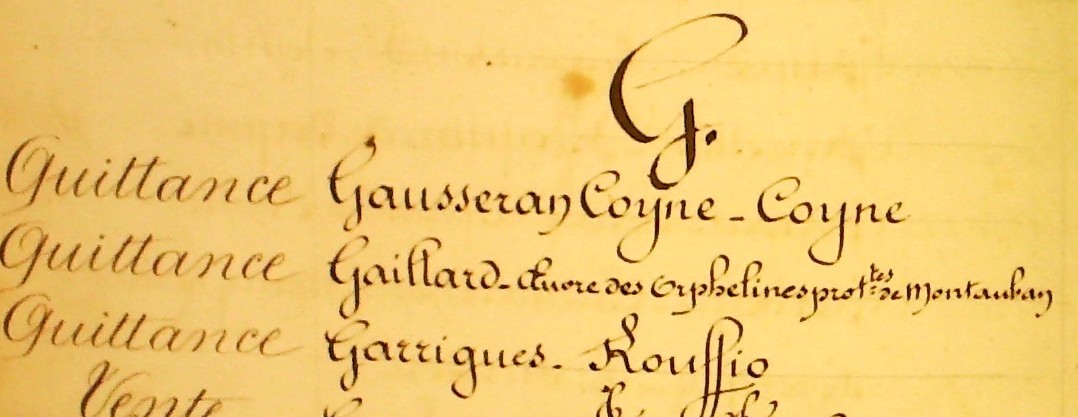 G.
Quittance Gausseran Coyne - Coyne
Quittance Gaillard - Œuvre des Orphelines prot.tes de Montauban
Quittance Garrigues - Rouffio
Vente